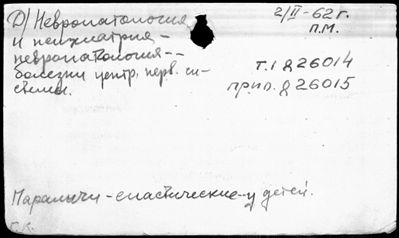 D) Невропатология
и психиатрия -
невропатология --
болезни центр. нерв. си-
стемы.
2/II - 62 г.
п.м.
т. 1 д 26014
прип. д 26015
Параличи - спастические - у детей.
Г.К.